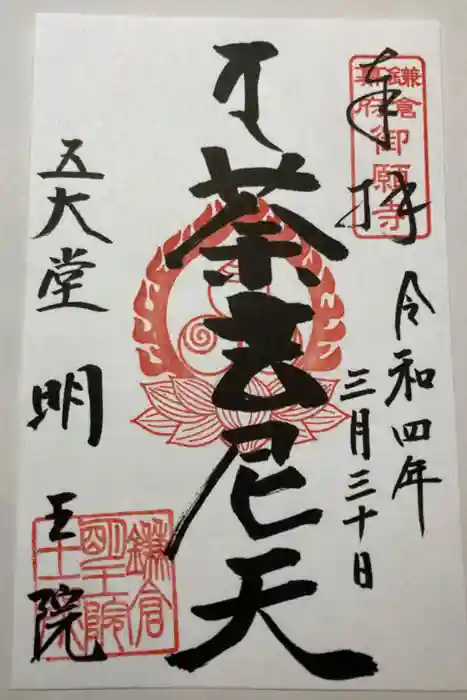 奉拝
鎌倉
幕府
御願寺
令和四年
三月三十日
荼吉尼天
五大堂 明王院